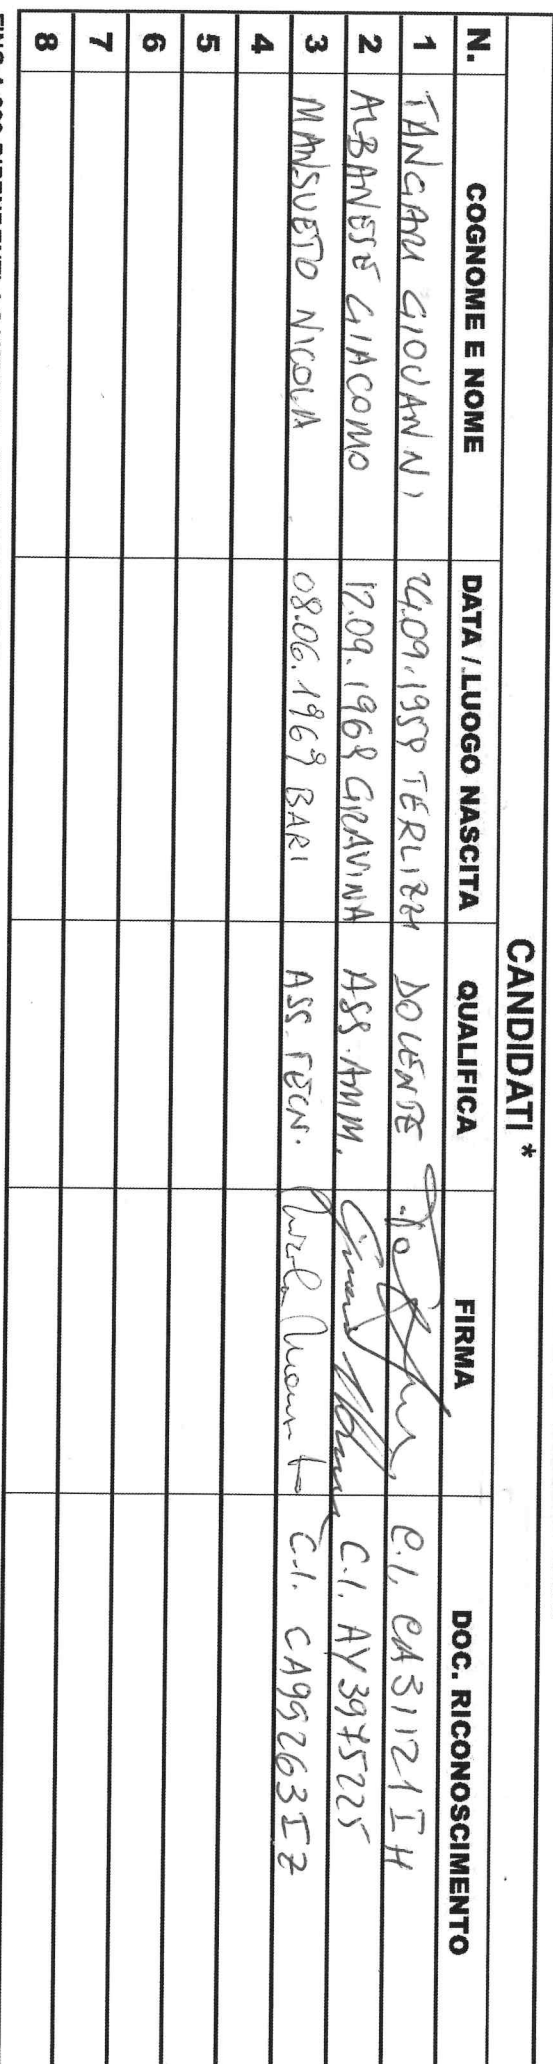 CANDIDATI *
N. COGNOME E NOME DATA / LUOGO NASCITA QUALIFICA FIRMA DOC. RICONOSCIMENTO
1 TANGARI GIOVANNI 24.09.1959 TERLIZZI DOCENTE C.I. CA31121IH
2 ALBANESE GIACOMO 12.09.1968 GRAVINA ASS. AMM. C.I. AY3975225
3 MANSUETO NICOLA 08.06.1969 BARI ASS. TECN. Nicola Mansueto C.I. CA99263IZ
4
5
6
7
8